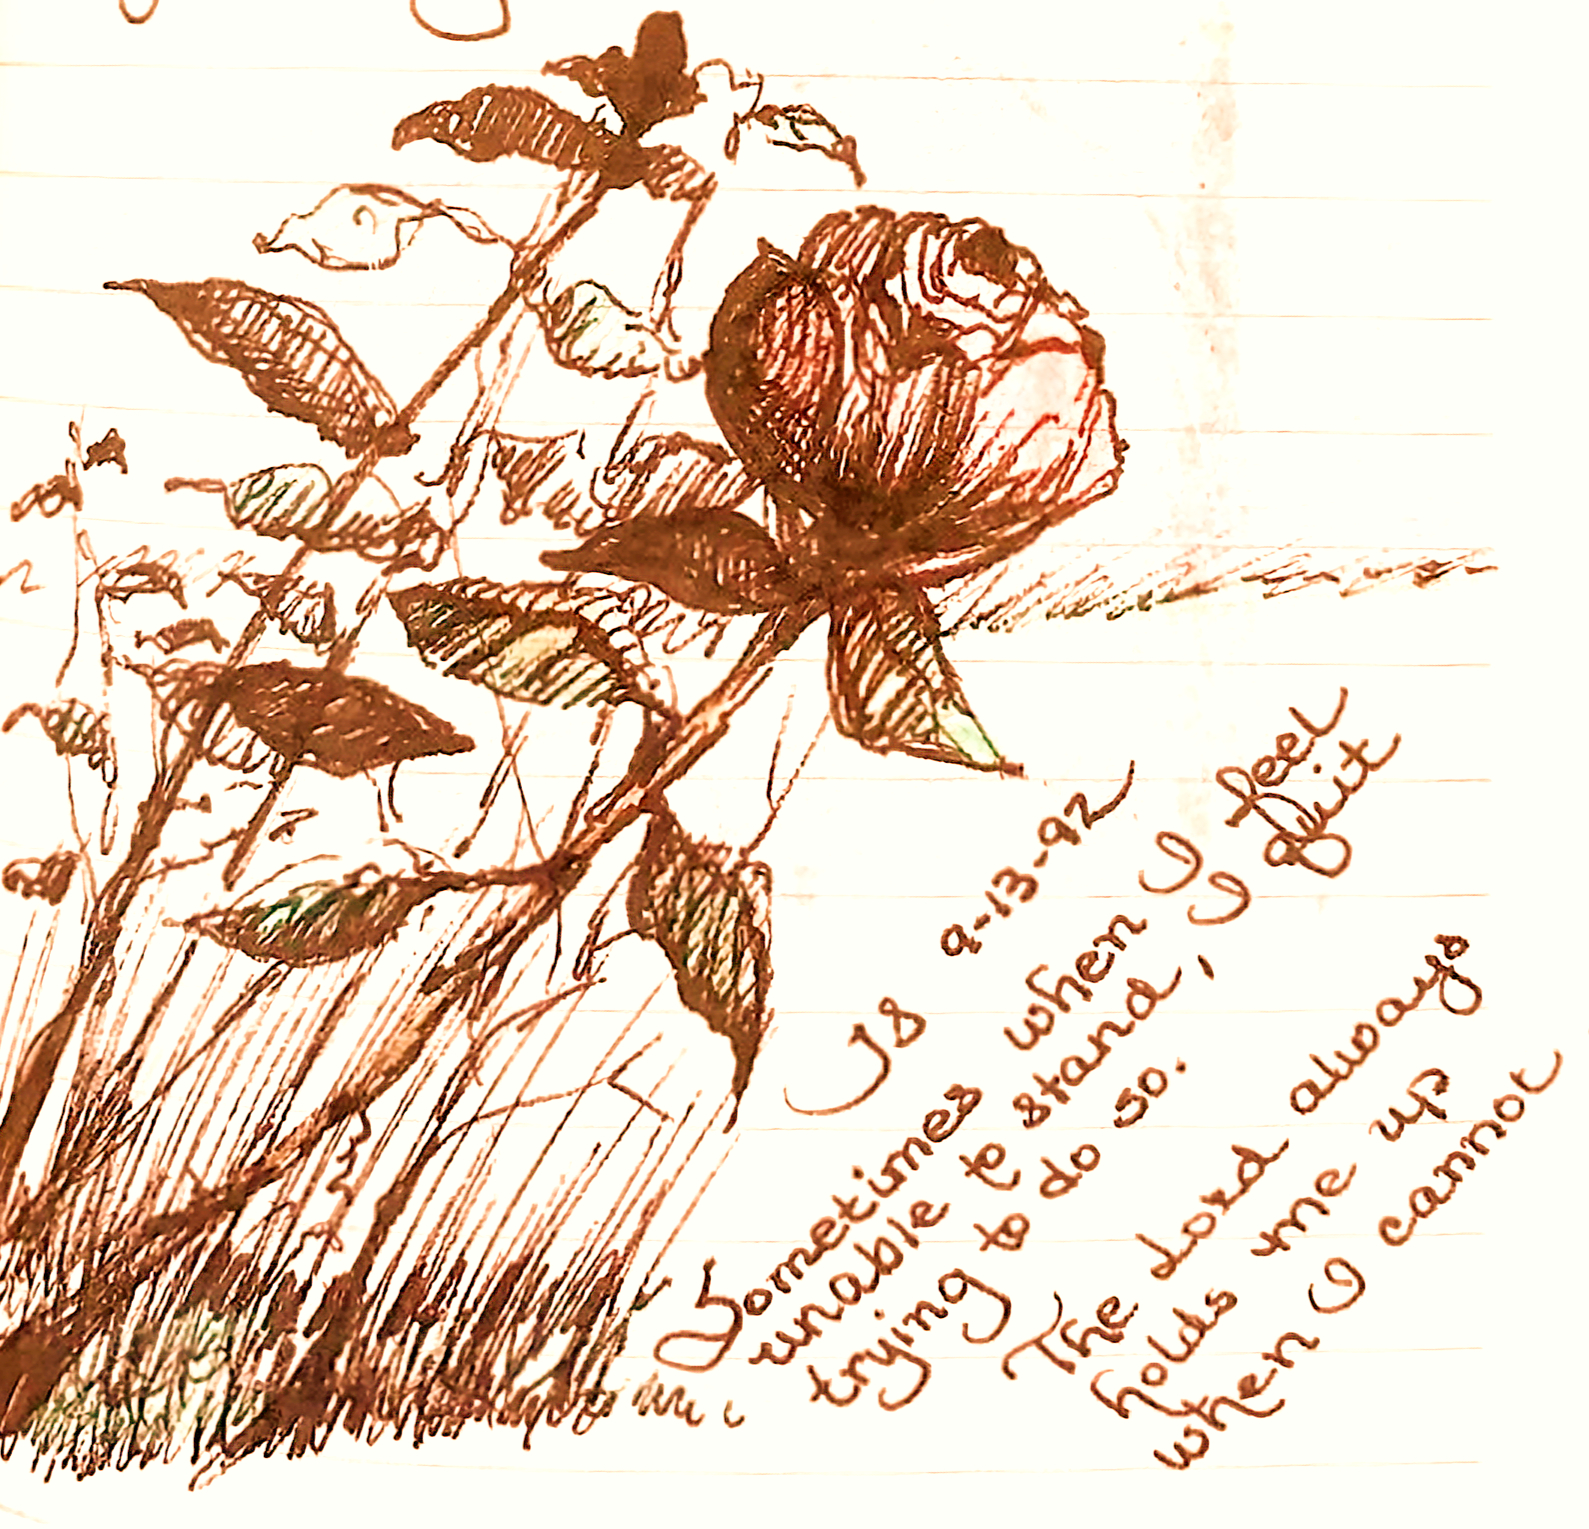 JS 9-13-92
Sometimes when I feel
unable to stand, I quit
trying to do so.
The Lord always
holds me up
when I cannot